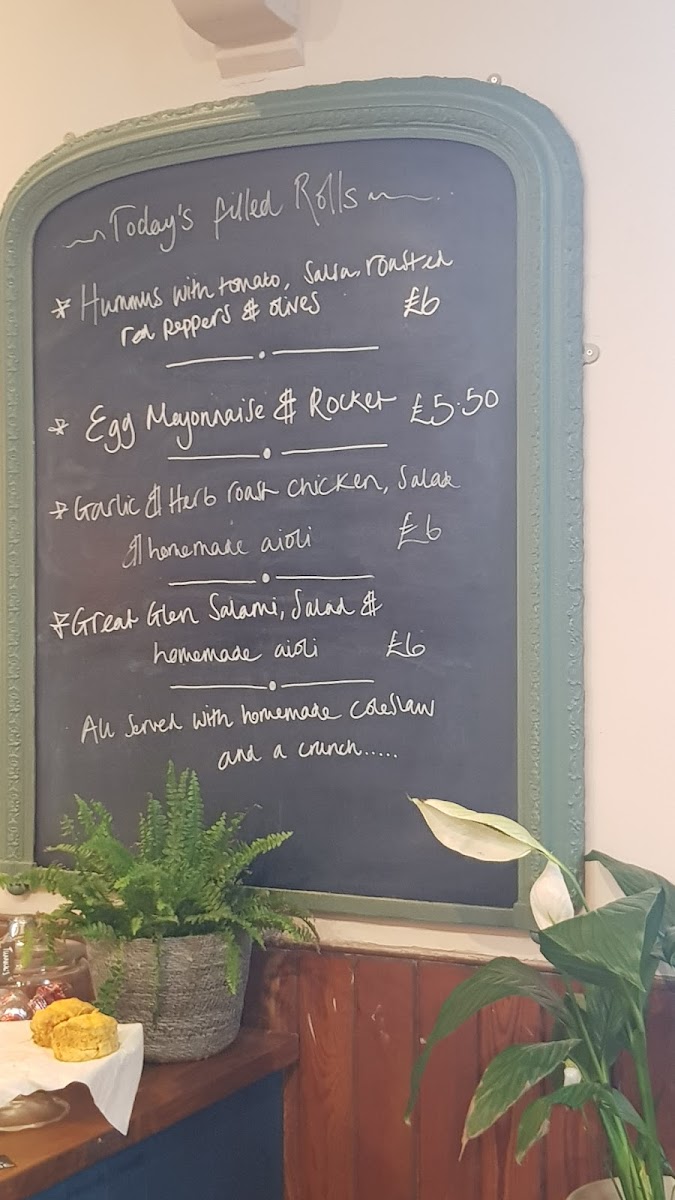 Today's filled Rolls
* Hummus with tomato, salsa, roasted
red peppers & olives £6
* Egg Mayonnaise & Rocket £5.50
* Garlic & Herb roast chicken, Salad
& homemade aioli £6
* Great Glen Salami, Salad &
homemade aioli £6
All served with homemade coleslaw
and a crunch.....